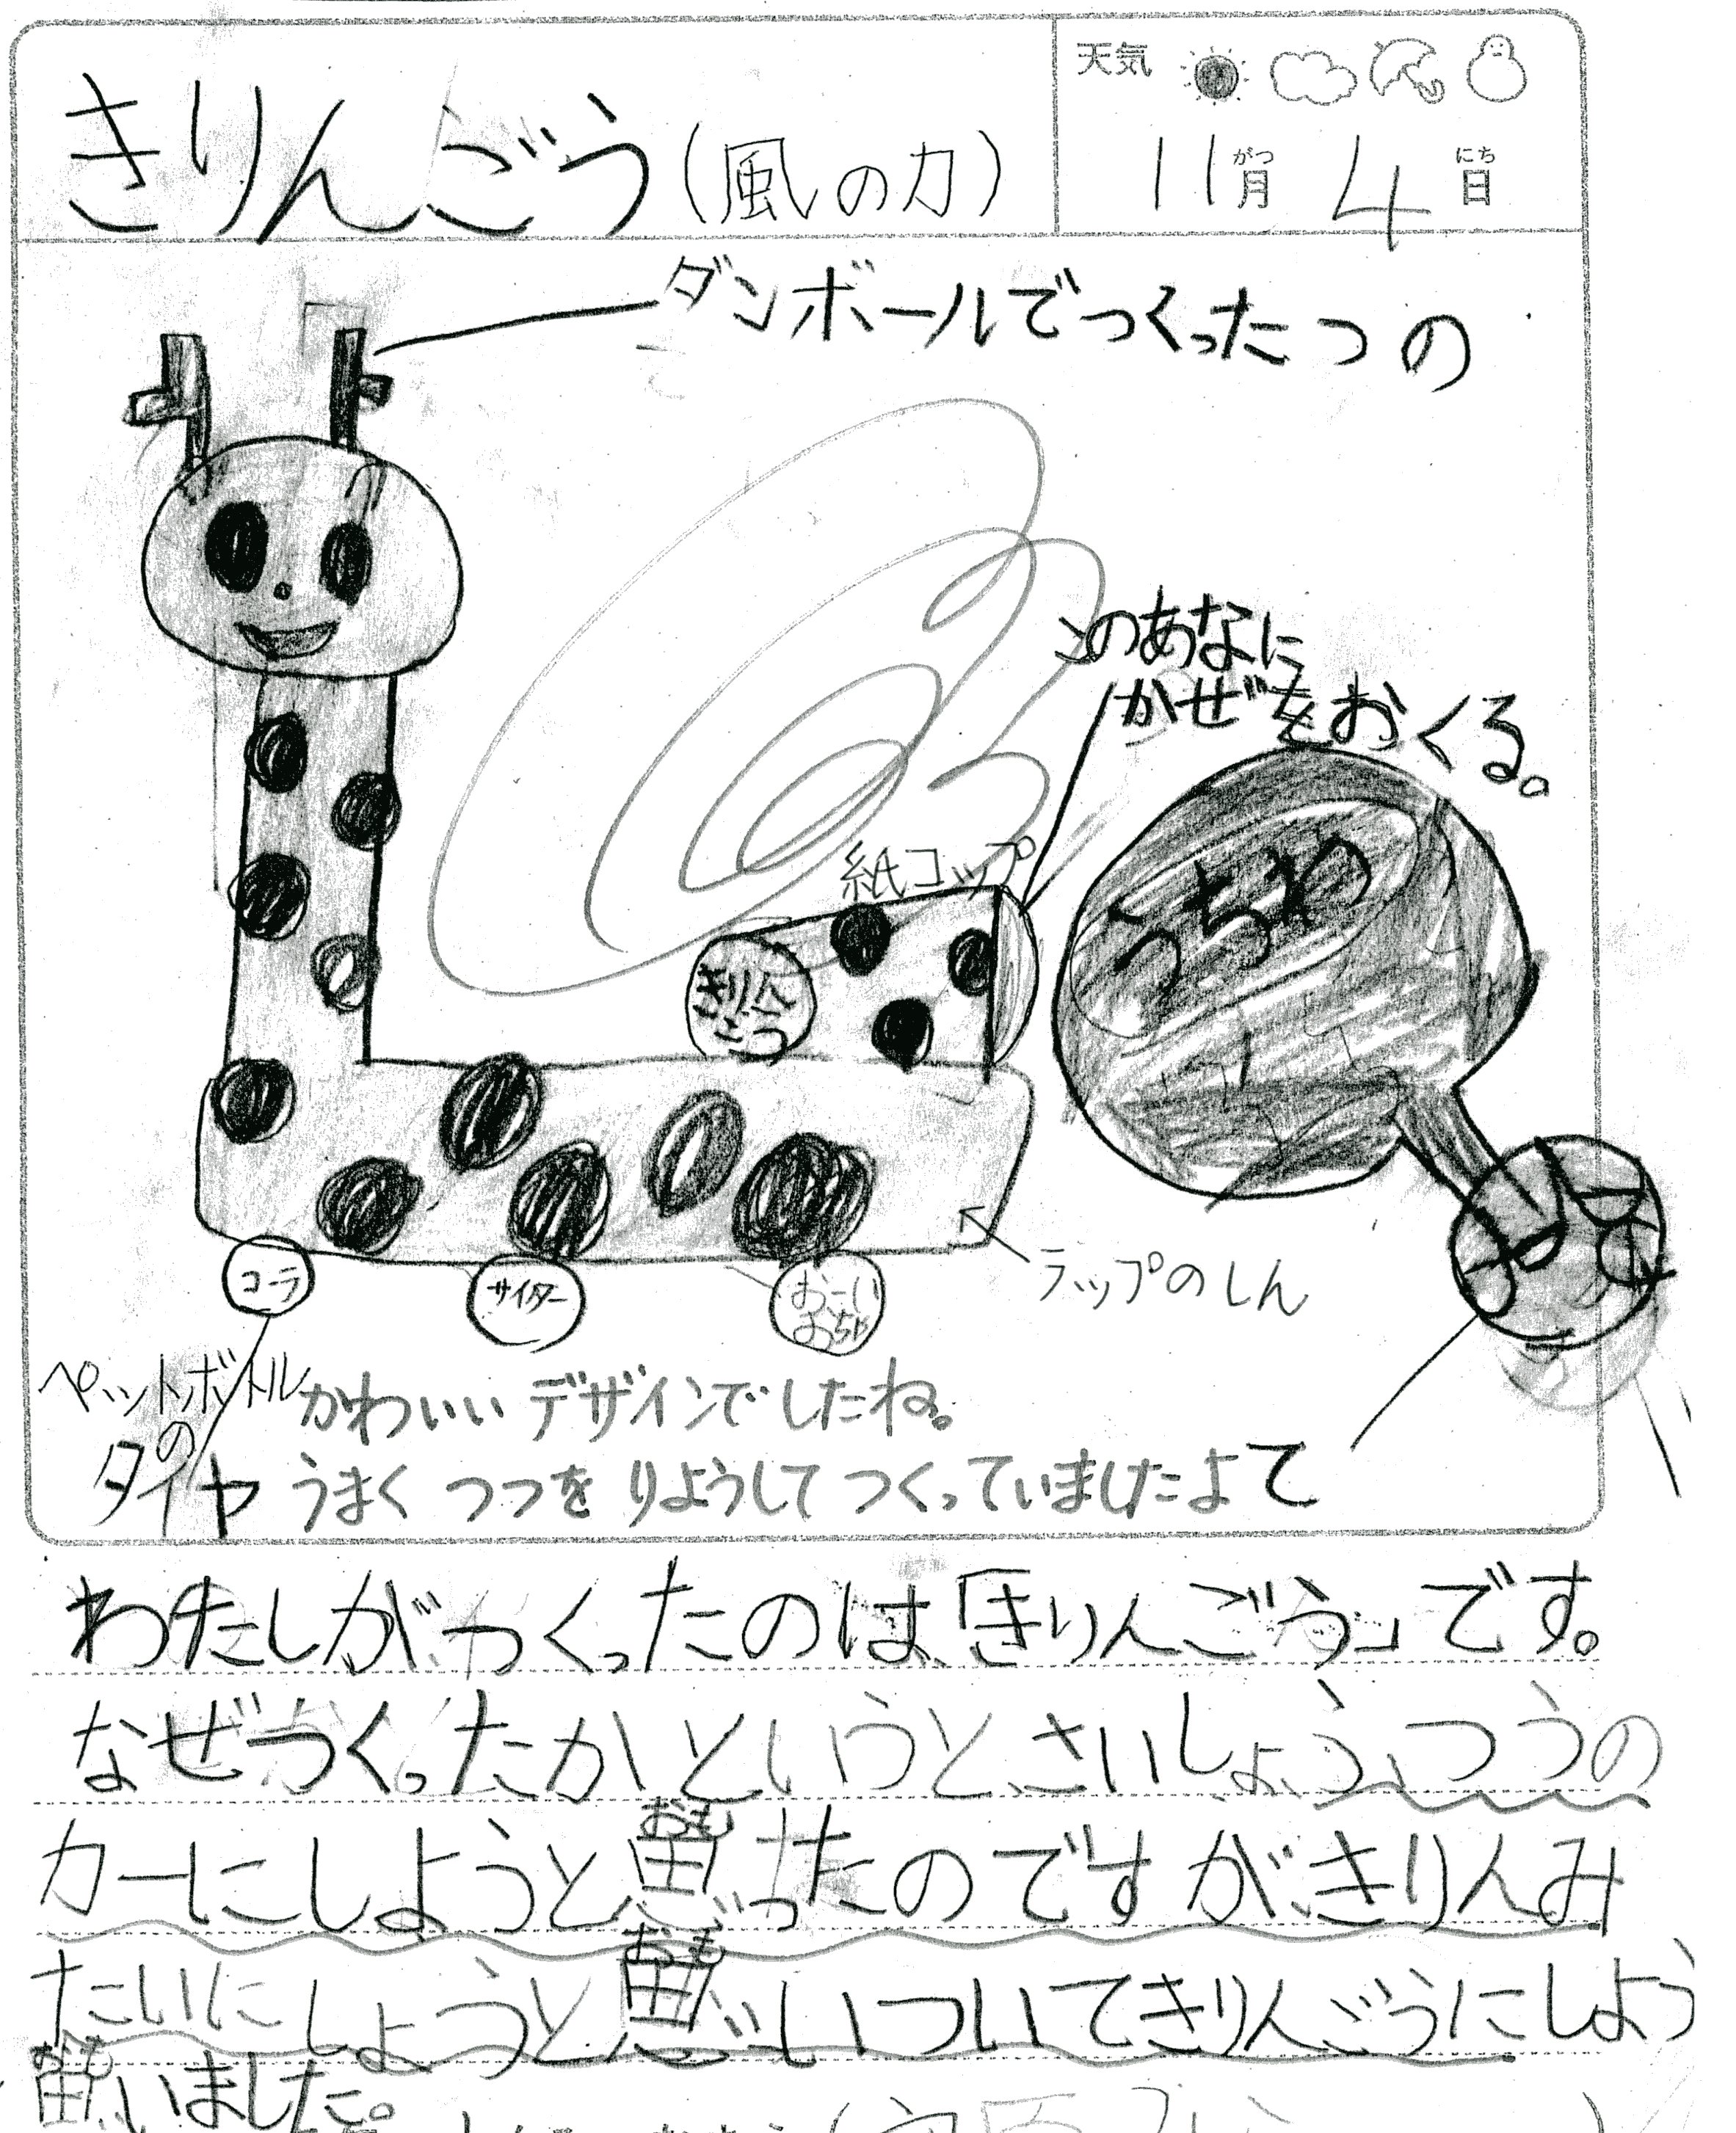 きりんごう(風の力)
天気
11月4日
がつ
にち
ダンボールでつくったつの
このあなに
かぜをおくる。
紙コップ
うちわ
きりん
ごう
ラップのしん
コーラ
サイダー
おーい
おちゃ
ペットボトル
の
タイヤ
かわいいデザインでしたね。
うまくつつをりようしてつくっていましたよ
て
わたしがつくったのは、「きりんごう」です。
なぜつくったかというと、さいしょ、ふつうの
おも
カーにしようと思ったのですが、きりんみ
おも
たいにしようと思いついてきりんごうにしよう
おも
思いました。